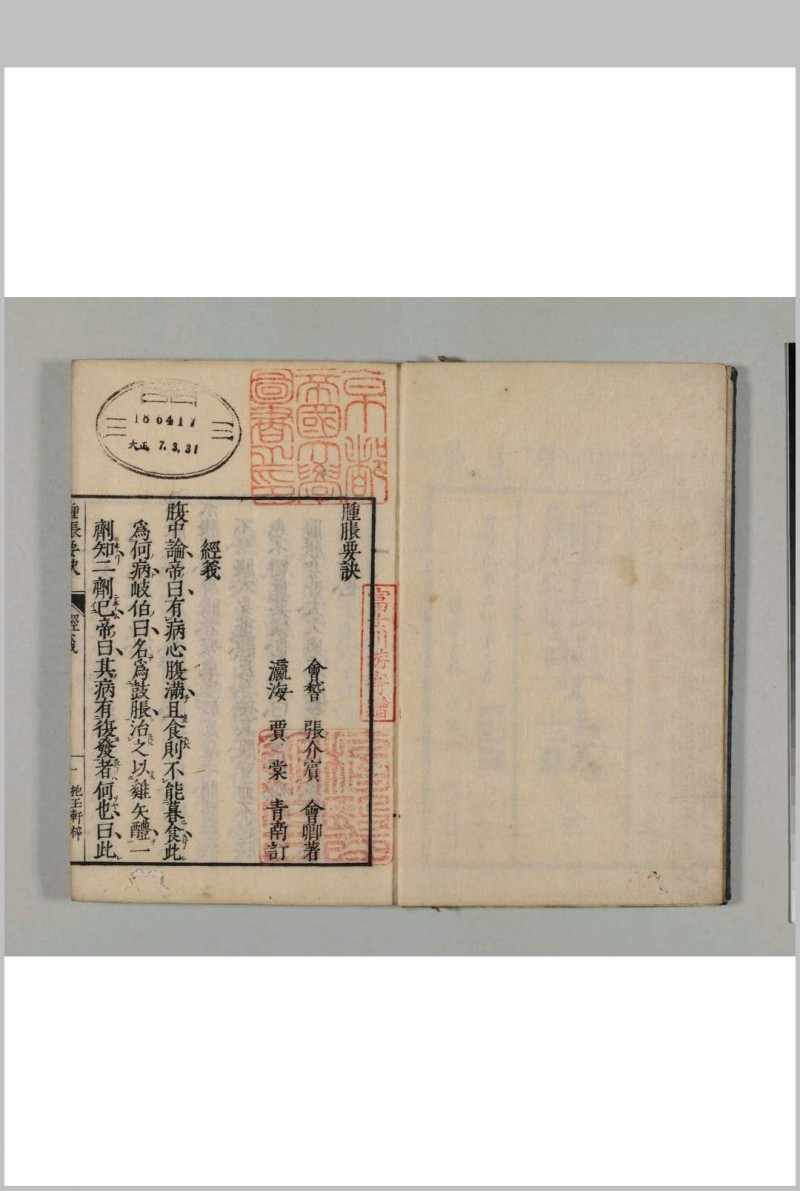 腫脹要訣
會稽 張介賓 會卿著
瀛海 賈 棠 青南訂
經義
腹中論帝曰有病心腹滿且食則不能暮食此
爲何病岐伯曰名爲鼓脹治之以雞矢醴一
劑知二劑已帝曰其病有復發者何也曰此
腫脹要訣
經義
一
富士川游寄贈
京都
帝國大學
圖書之印
186417
大正 7.3.31